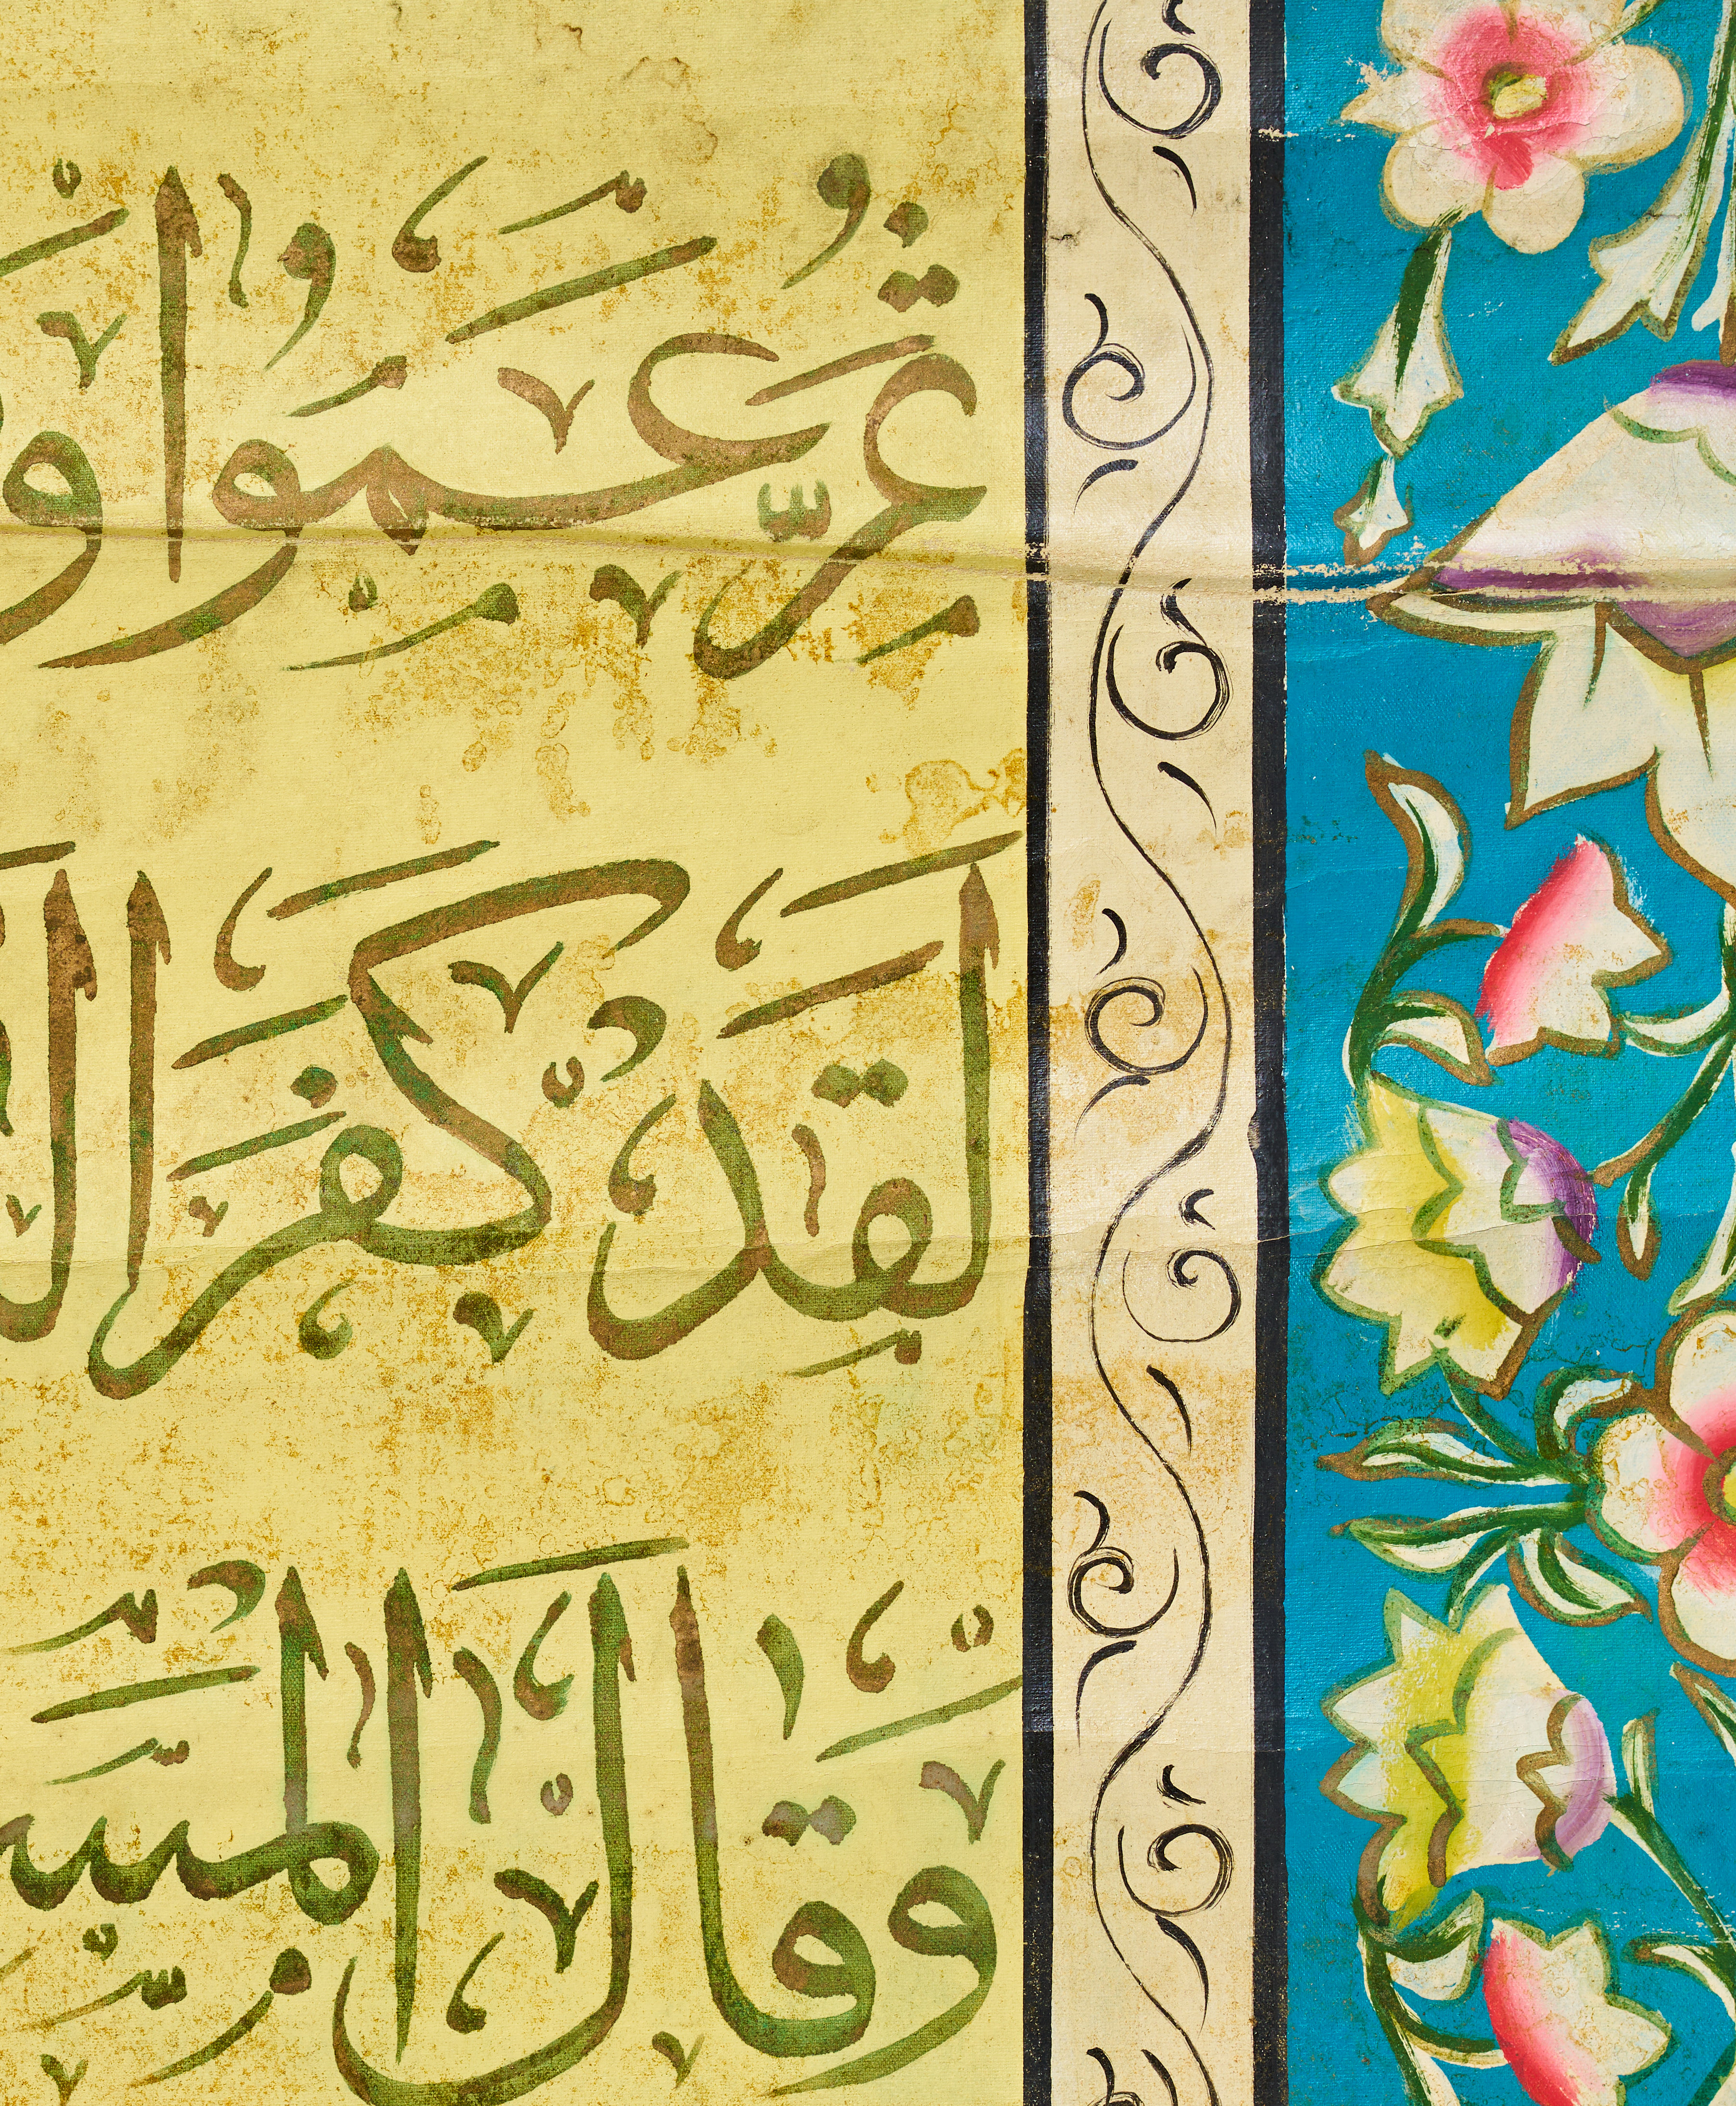 ثُمَّ عَمُوا وَ
لَقَدْ كَفَرَ الَّ
وَقَالَ الْمَسِ